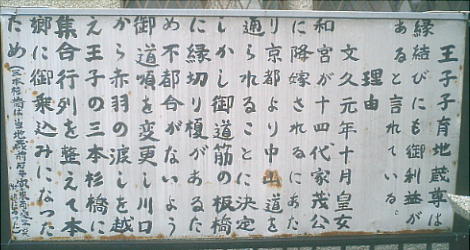 王子子育地蔵尊は
縁結びにも御利益が
あると言れている。
理由
文久元年十月皇女
和宮が十四代家茂公
に降嫁されるにあた
り京都より中山道を
通られることに決定
しかし御道筋の板橋
に縁切り榎があるた
め不都合がないよう
御道順を変更し川口
から赤羽の渡しを越
え王子の三本杉橋に
集合行列を整えて本
郷に御乗込みになった
ため